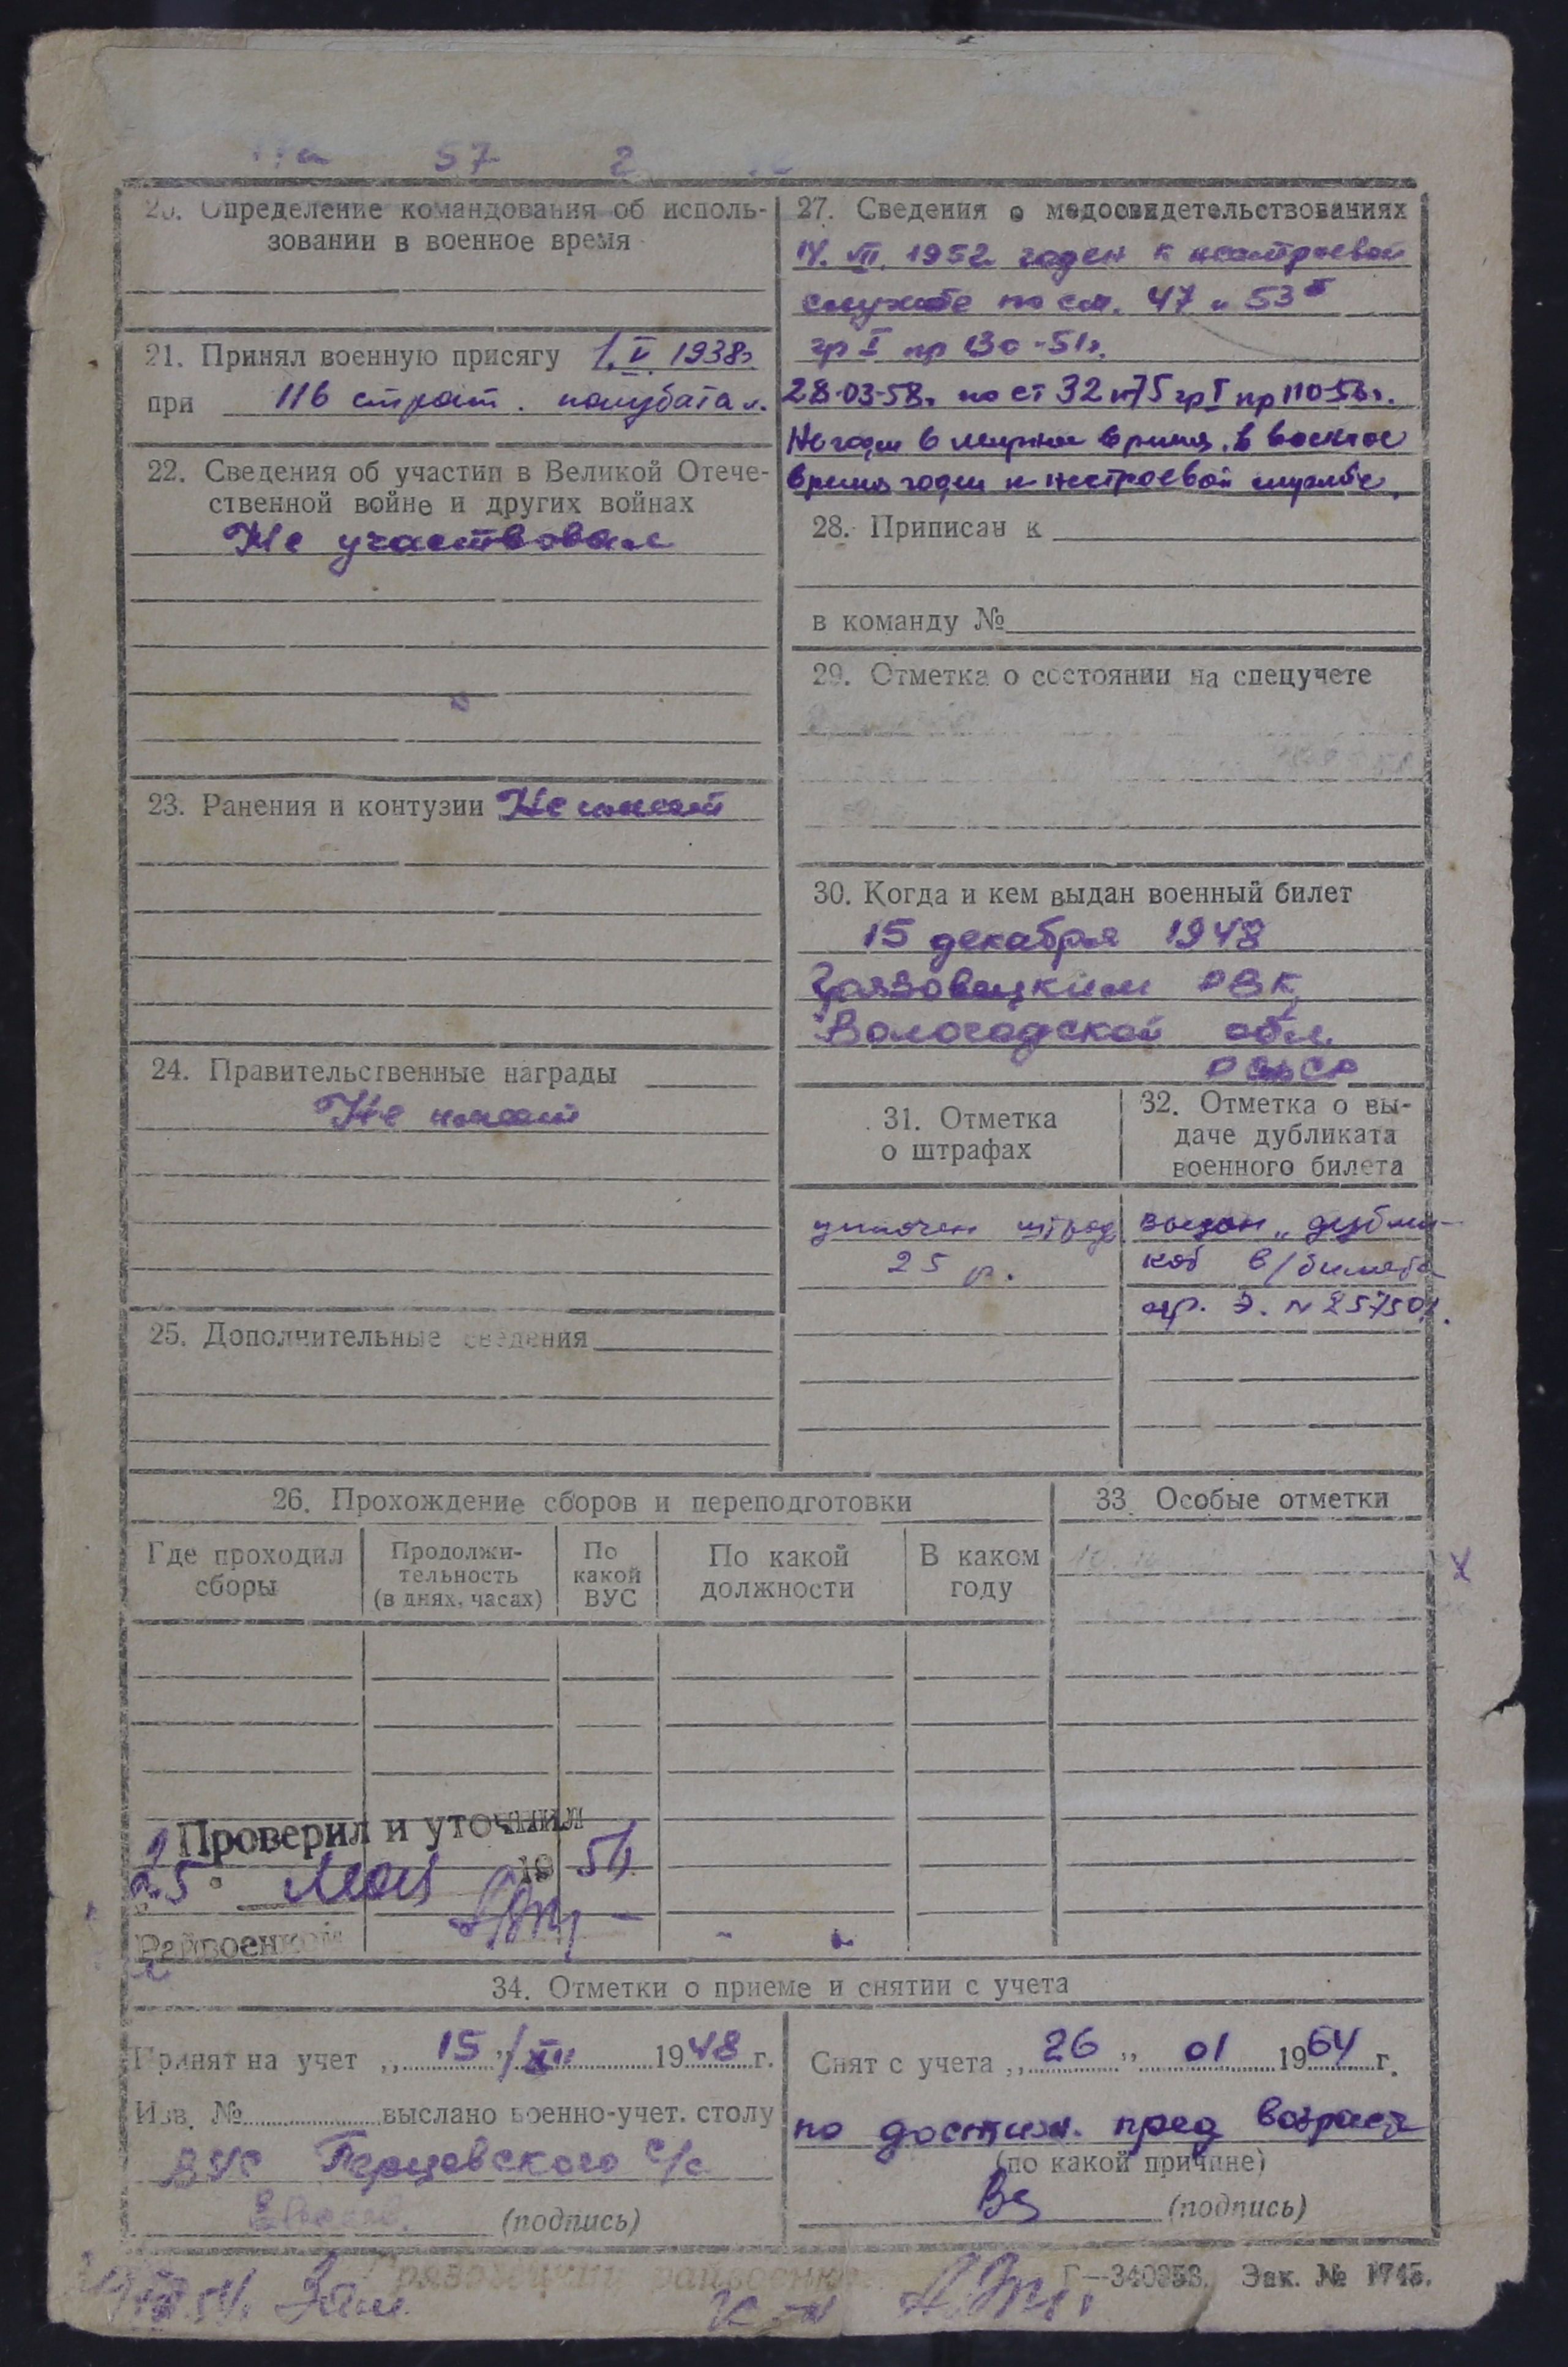 57 2
20. Определение командования об исполь-
зовании в военное время
21. Принял военную присягу 1.V.1938г.
при 116 строит.
22. Сведения об участии в Великой Отече-
ственной войне и других войнах
Не участвовал
23. Ранения и контузии Не имеет
24. Правительственные награды
Не имеет
25. Дополнительные сведения
27. Сведения о медосвидетельствованиях
VII 1952 годен к нестроевой
службе по ст. 47 и 53
гр I пр 130-51г.
28.03.58г. по ст 32 и 75 гр I пр 110-56г.
Не годен в мирное время, в военное
время годен к нестроевой службе.
28. Приписан к
в команду №
29. Отметка о состоянии на спецучете
30. Когда и кем выдан военный билет
15 декабря 1948
Грязовецким РВК
Вологодской обл.
РСФСР
31. Отметка
о штрафах
уплочен штраф
25 р.
32. Отметка о вы-
даче дубликата
военного билета
выдан „дубли-
кат в/билета
26. Прохождение сборов и переподготовки
Где проходил
сборы
Продолжи-
тельность
(в днях, часах)
По
какой
ВУС
По какой
должности
В каком
году
33. Особые отметки
Проверил и уточнил
25 мая 1954
Райвоенком
34. Отметки о приеме и снятии с учета
Принят на учет „15"/XII 1948 г.
Изв. № выслано военно-учет. столу
ВУС Перцевского с/с
(подпись)
Снят с учета „26" 01 1964 г.
по достиж. пред возраста
(по какой причине)
(подпись)
Г—340853. Зак. № 1745.
Зам.